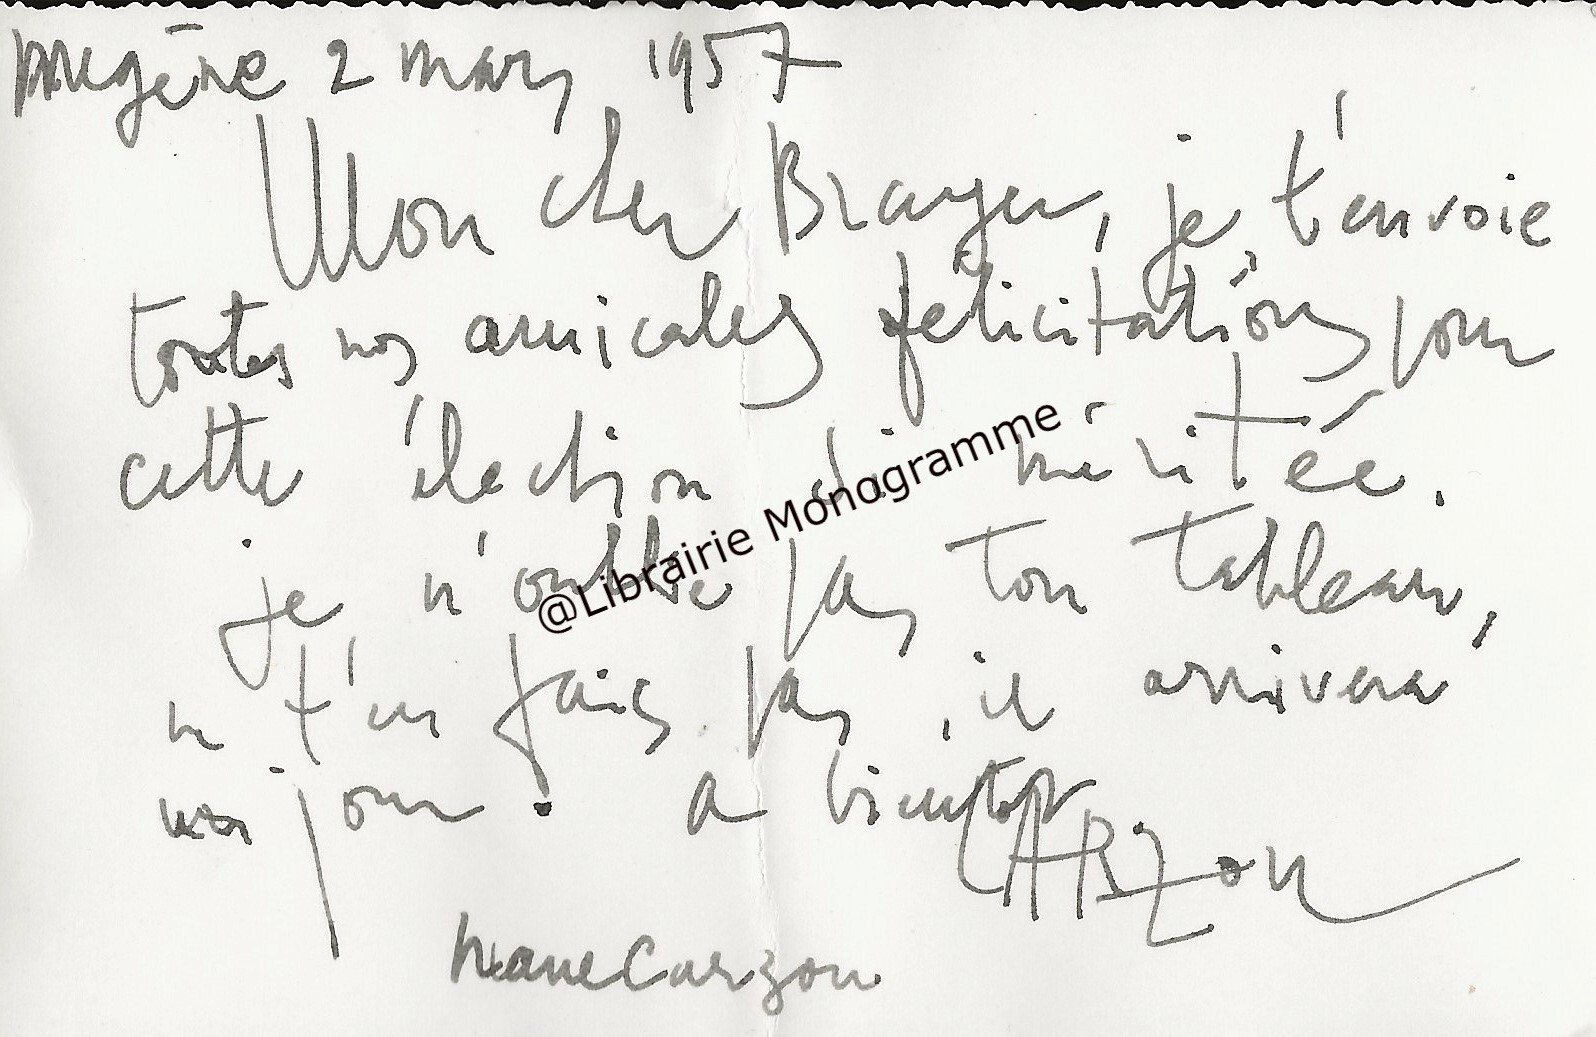 mugère 2 mars 1957
Mon cher Brayer, je t'envoie
toutes nos amicales félicitations pour
cette élection si méritée.
je n'oublie pas ton tableau,
ne t'en fais pas, il arrivera
un jour. a bientôt
CARZOU
Nane Carzou
@Librairie Monogramme